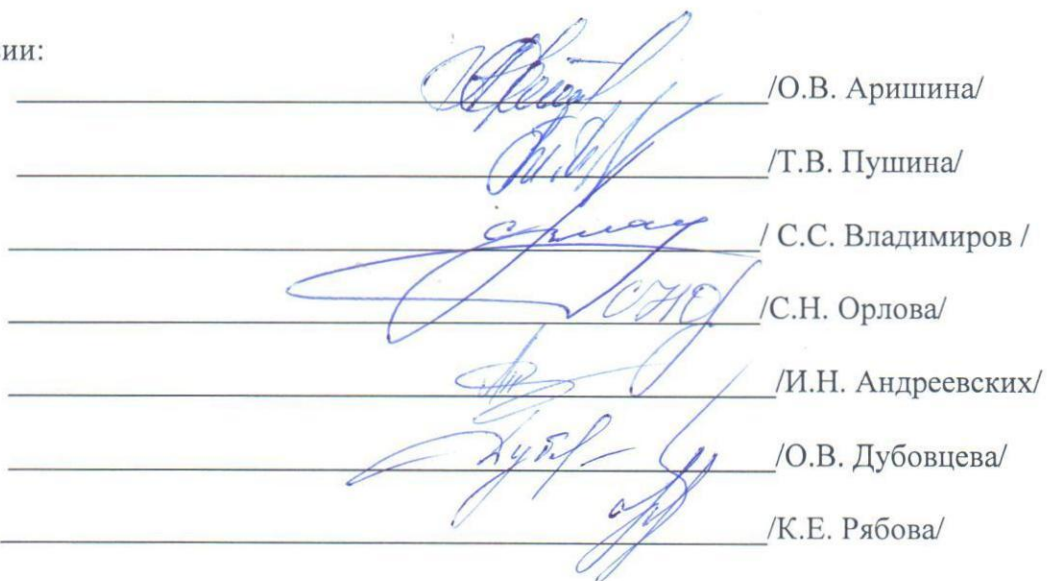 ии:
/О.В. Аришина/
/Т.В. Пушина/
/ С.С. Владимиров /
/С.Н. Орлова/
/И.Н. Андреевских/
/О.В. Дубовцева/
/К.Е. Рябова/